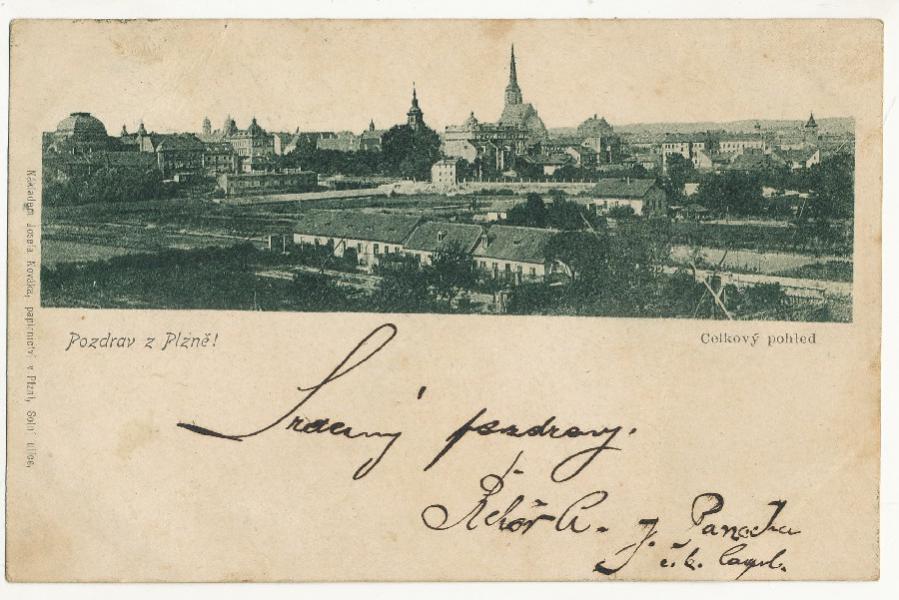 Nákladem Josefa Kováka, papírnictví v Plzni, Solní ulice,
Pozdrav z Plzně!
Celkový pohled
Srdečný pozdrav.
Řehoř A.
J.